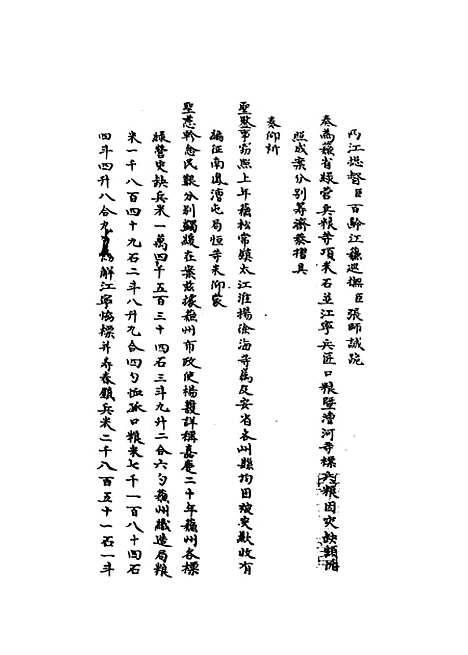 两江總督臣百齡江蘇巡撫臣張師誠跪
奏為蘇省綠營兵粮等項米石並江寧兵匠口粮暨漕河等標兵粮因灾缺額
照成案分别籌濟恭摺具
奏仰祈
聖鑒事窃照上年蘇松常鎮太江淮揚徐海等属及安省各州縣均因被灾歉收有
漕征南邊漕屯局恒等米仰蒙
聖慈軫念民艱分别蠲緩在案兹據蘇州布政使楊頀詳稱嘉慶二十年蘇州各標
綠營灾缺兵米一萬四千五百三十四石三斗九升二合六勺蘇州織造局粮
米一千八百四十九石二斗八升九合四勺恤孤口粮米七千一百八十四石
四斗四升八合九勺解江寧協標并寿春鎮兵米二千八百五十一石一斗